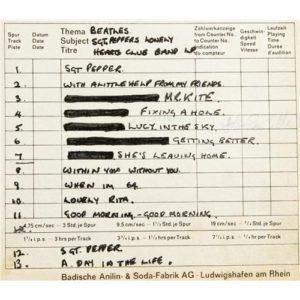 Spur Track Piste
Datum Date Date
Thema Subject Titre
BEATLES
SGT. PEPPERS LONELY
HEARTS CLUB BAND LP
Zählwerkanzeige from Counter No. to Counter No. Indication du compteur
Geschwindigkeit Speed Vitesse
Laufzeit Playing Time Durée d'audition
1. SGT PEPPER.
2. WITH A LITTLE HELP FROM MY FRIENDS.
3. MR. KITE.
4. FIXING A HOLE.
5. LUCY IN THE SKY.
6. GETTING BETTER.
7 SHE'S LEAVING HOME.
8. WITHIN YOU WITHOUT YOU.
9. WHEN IM 64.
10. LOVELY RITA.
11. GOOD MORNING - GOOD MORNING.
4,75 cm/sec 9,5 Std. je Spur 19 cm/sec Std. je Spur
1 7/8 i.p.s. 3 hrs per Track 3 3/4 i.p.s. hrs per Track 7 1/2 i.p.s. hrs per Track
12. SGT. PEPPER
13. A DAY IN THE LIFE.
Badische Anilin- & Soda-Fabrik AG · Ludwigshafen am Rhein